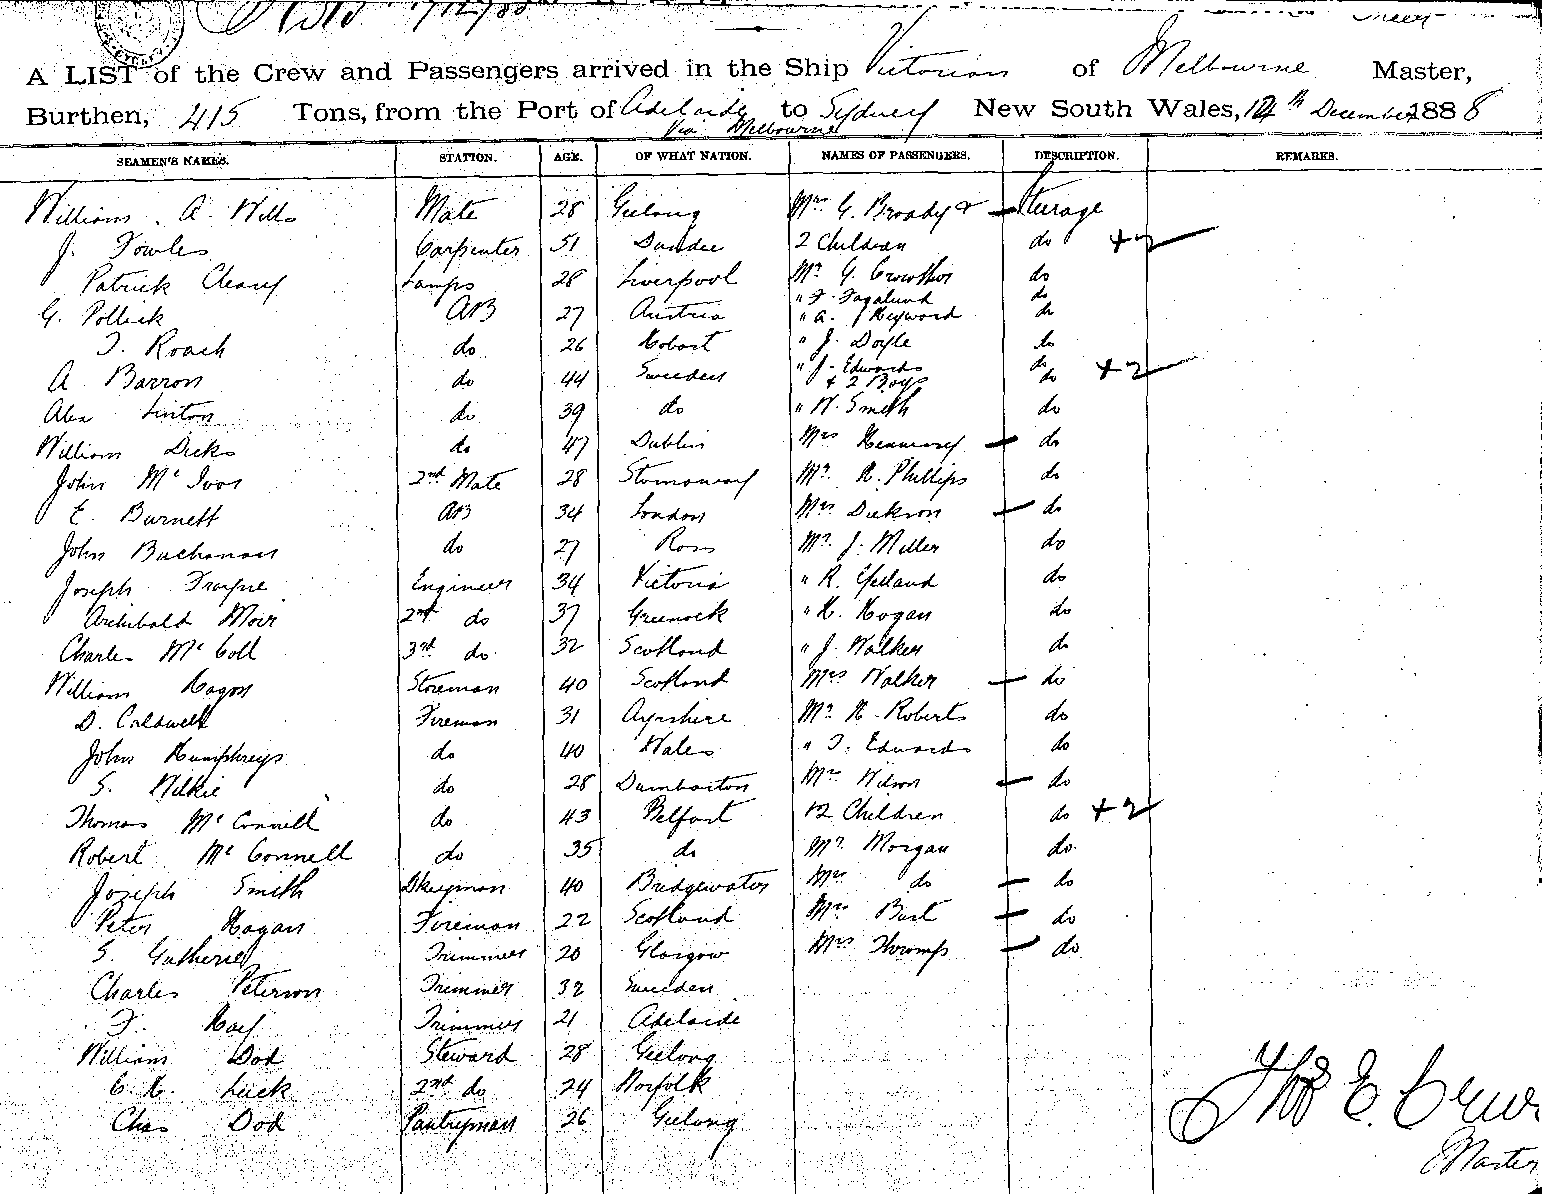 A LIST of the Crew and Passengers arrived in the Ship Victorian of Melbourne Master,
Burthen, 415 Tons, from the Port of Adelaide to Sydney New South Wales, 12th December 1888
Via Melbourne
SEAMEN'S NAMES. STATION. AGE. OF WHAT NATION. NAMES OF PASSENGERS. DESCRIPTION. REMARKS.
William A. Wills Mate 28 Geelong Mrs G. Broady & Steerage
J. Fowles Carpenter 51 Dundee 2 Children do +2
Patrick Cleary Lamps 28 Liverpool Mr G. Crowther do
" F. Fagalund do
G. Pollock AB 27 Austria " A. Heyword do
T. Roach do 26 Hobart " J. Doyle do
" J. Edwards do
A. Barron do 44 Sweden + 2 Boys do +2
Alex Linton do 39 do " W. Smith do
William Dicks do 47 Dublin Mrs Hennessy do
John McIvor 2nd Mate 28 Stornoway Mr. H. Phillips do
E. Burnett AB 34 London Mrs Dickson do
John Buchanan do 27 Ross Mr. J. Miller do
Joseph Frayne Engineer 34 Victoria " R. Yelland do
Archibald Moir 2nd do 37 Greenock " H. Hogan do
Charles McColl 3rd do 32 Scotland " J. Walker do
William Hagon Storeman 40 Scotland Mrs Walker do
D. Caldwell Fireman 31 Ayrshire Mr. H. Roberts do
John Humphreys do 40 Wales " T. Edwards do
S. Wilkie do 28 Dumbarton Mrs Wilson do
Thomas McConnell do 43 Belfast 2 Children do +2
Robert McConnell do 35 do Mr. Morgan do
Joseph Smith Dkeyman 40 Bridgewater Mrs do do
Peter Hagan Fireman 22 Scotland Mrs Burt do
S. Gutherie Trimmer 20 Glasgow Mrs Thromp do
Charles Peterson Trimmer 32 Sweden
F. Hay Trimmer 21 Adelaide
William Dod Steward 28 Geelong
C. H. Luck 2nd do 24 Norfolk
Chas Dod Pantryman 26 Geelong
Master